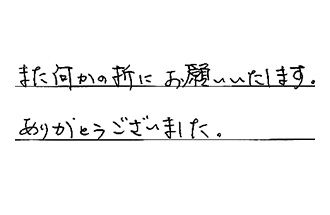 また何かの折に お願いいたします。
ありがとうございました。